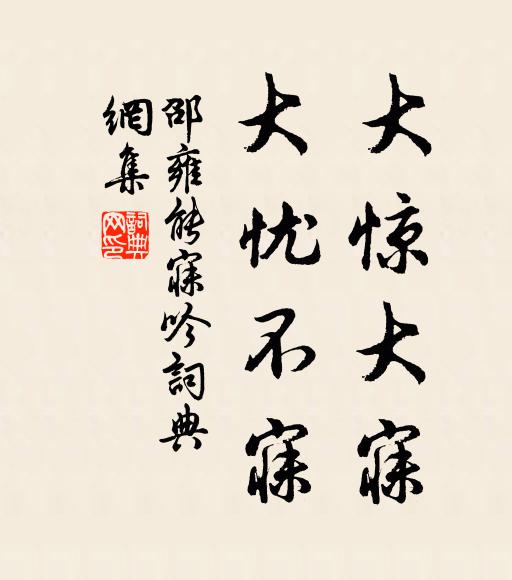 大惊大寐
大忧不寐
邵雍能寐吟詞典
網集
詞典网印